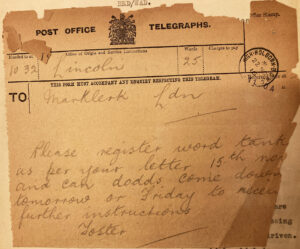 POST OFFICE TELEGRAPHS.
Office of Origin and Service Instructions
Words
Charges to pay
Handed in at
10 32 Lincoln 25
THIS FORM MUST ACCOMPANY ANY INQUIRY RESPECTING THIS TELEGRAM.
TO Marklerk Ldn
Please register word tank
as per your letter 15th
and can dodds come down
tomorrow or Friday to
further instructions
Foster
are
sing
riven.